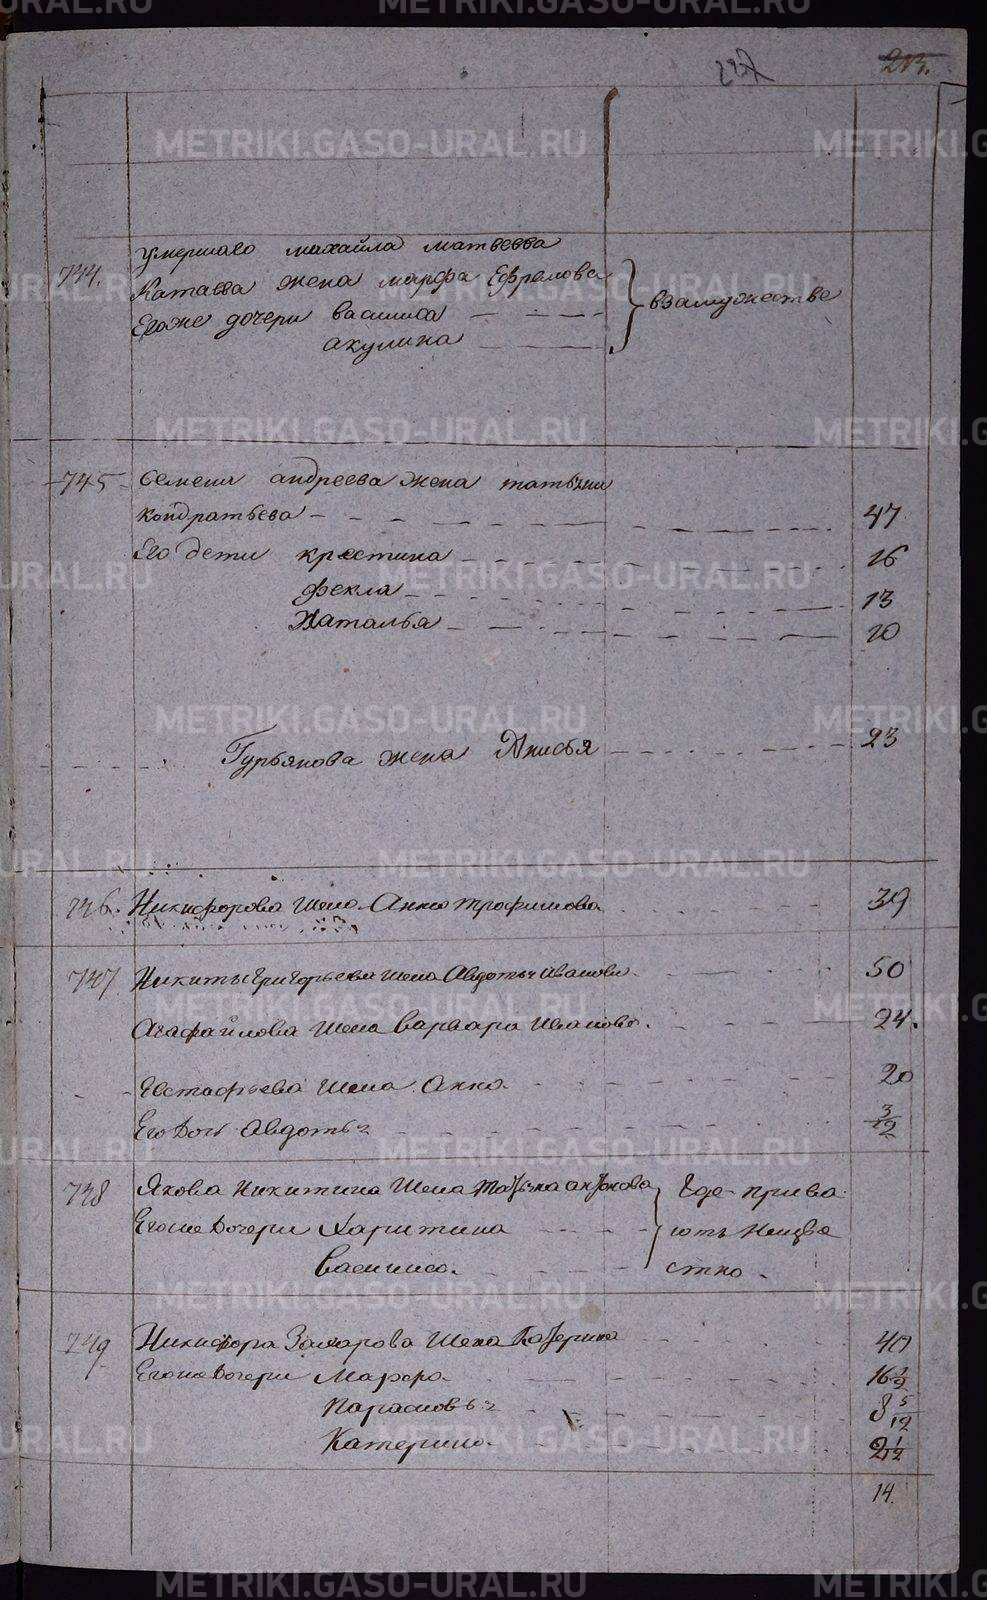 227
213.
умершаго михайла матвеева
744.
Катаева жена марфа Ефремова
Егоже дочери василиса
акулина
взамужестве
745
семена андреева жена татьяна
кондратьева 47
Его дети крестина 16
фекла 13
Наталья 10
Гурьянова жена Анисья 23
746. Никифорова жена Анна трофимова 39
747 Никиты Григорьева жена Авдотья Иванова 50
Агафайлова жена варвара Иванова. 24.
Евстафьева жена Анна 20
Его дочь Авдотья 3/12
748 Якова Никитина жена татьяна антонова
Где прива
Егоже дочери Харитина
ють неизве
василиса.
стно.
749 Никифора Захарова жена Катерина 40
Егоже дочери Марфа 16 1/2
Парасковья 8 5/12
Катерина 2 1/2
14.
METRIKI.GASO-URAL.RU